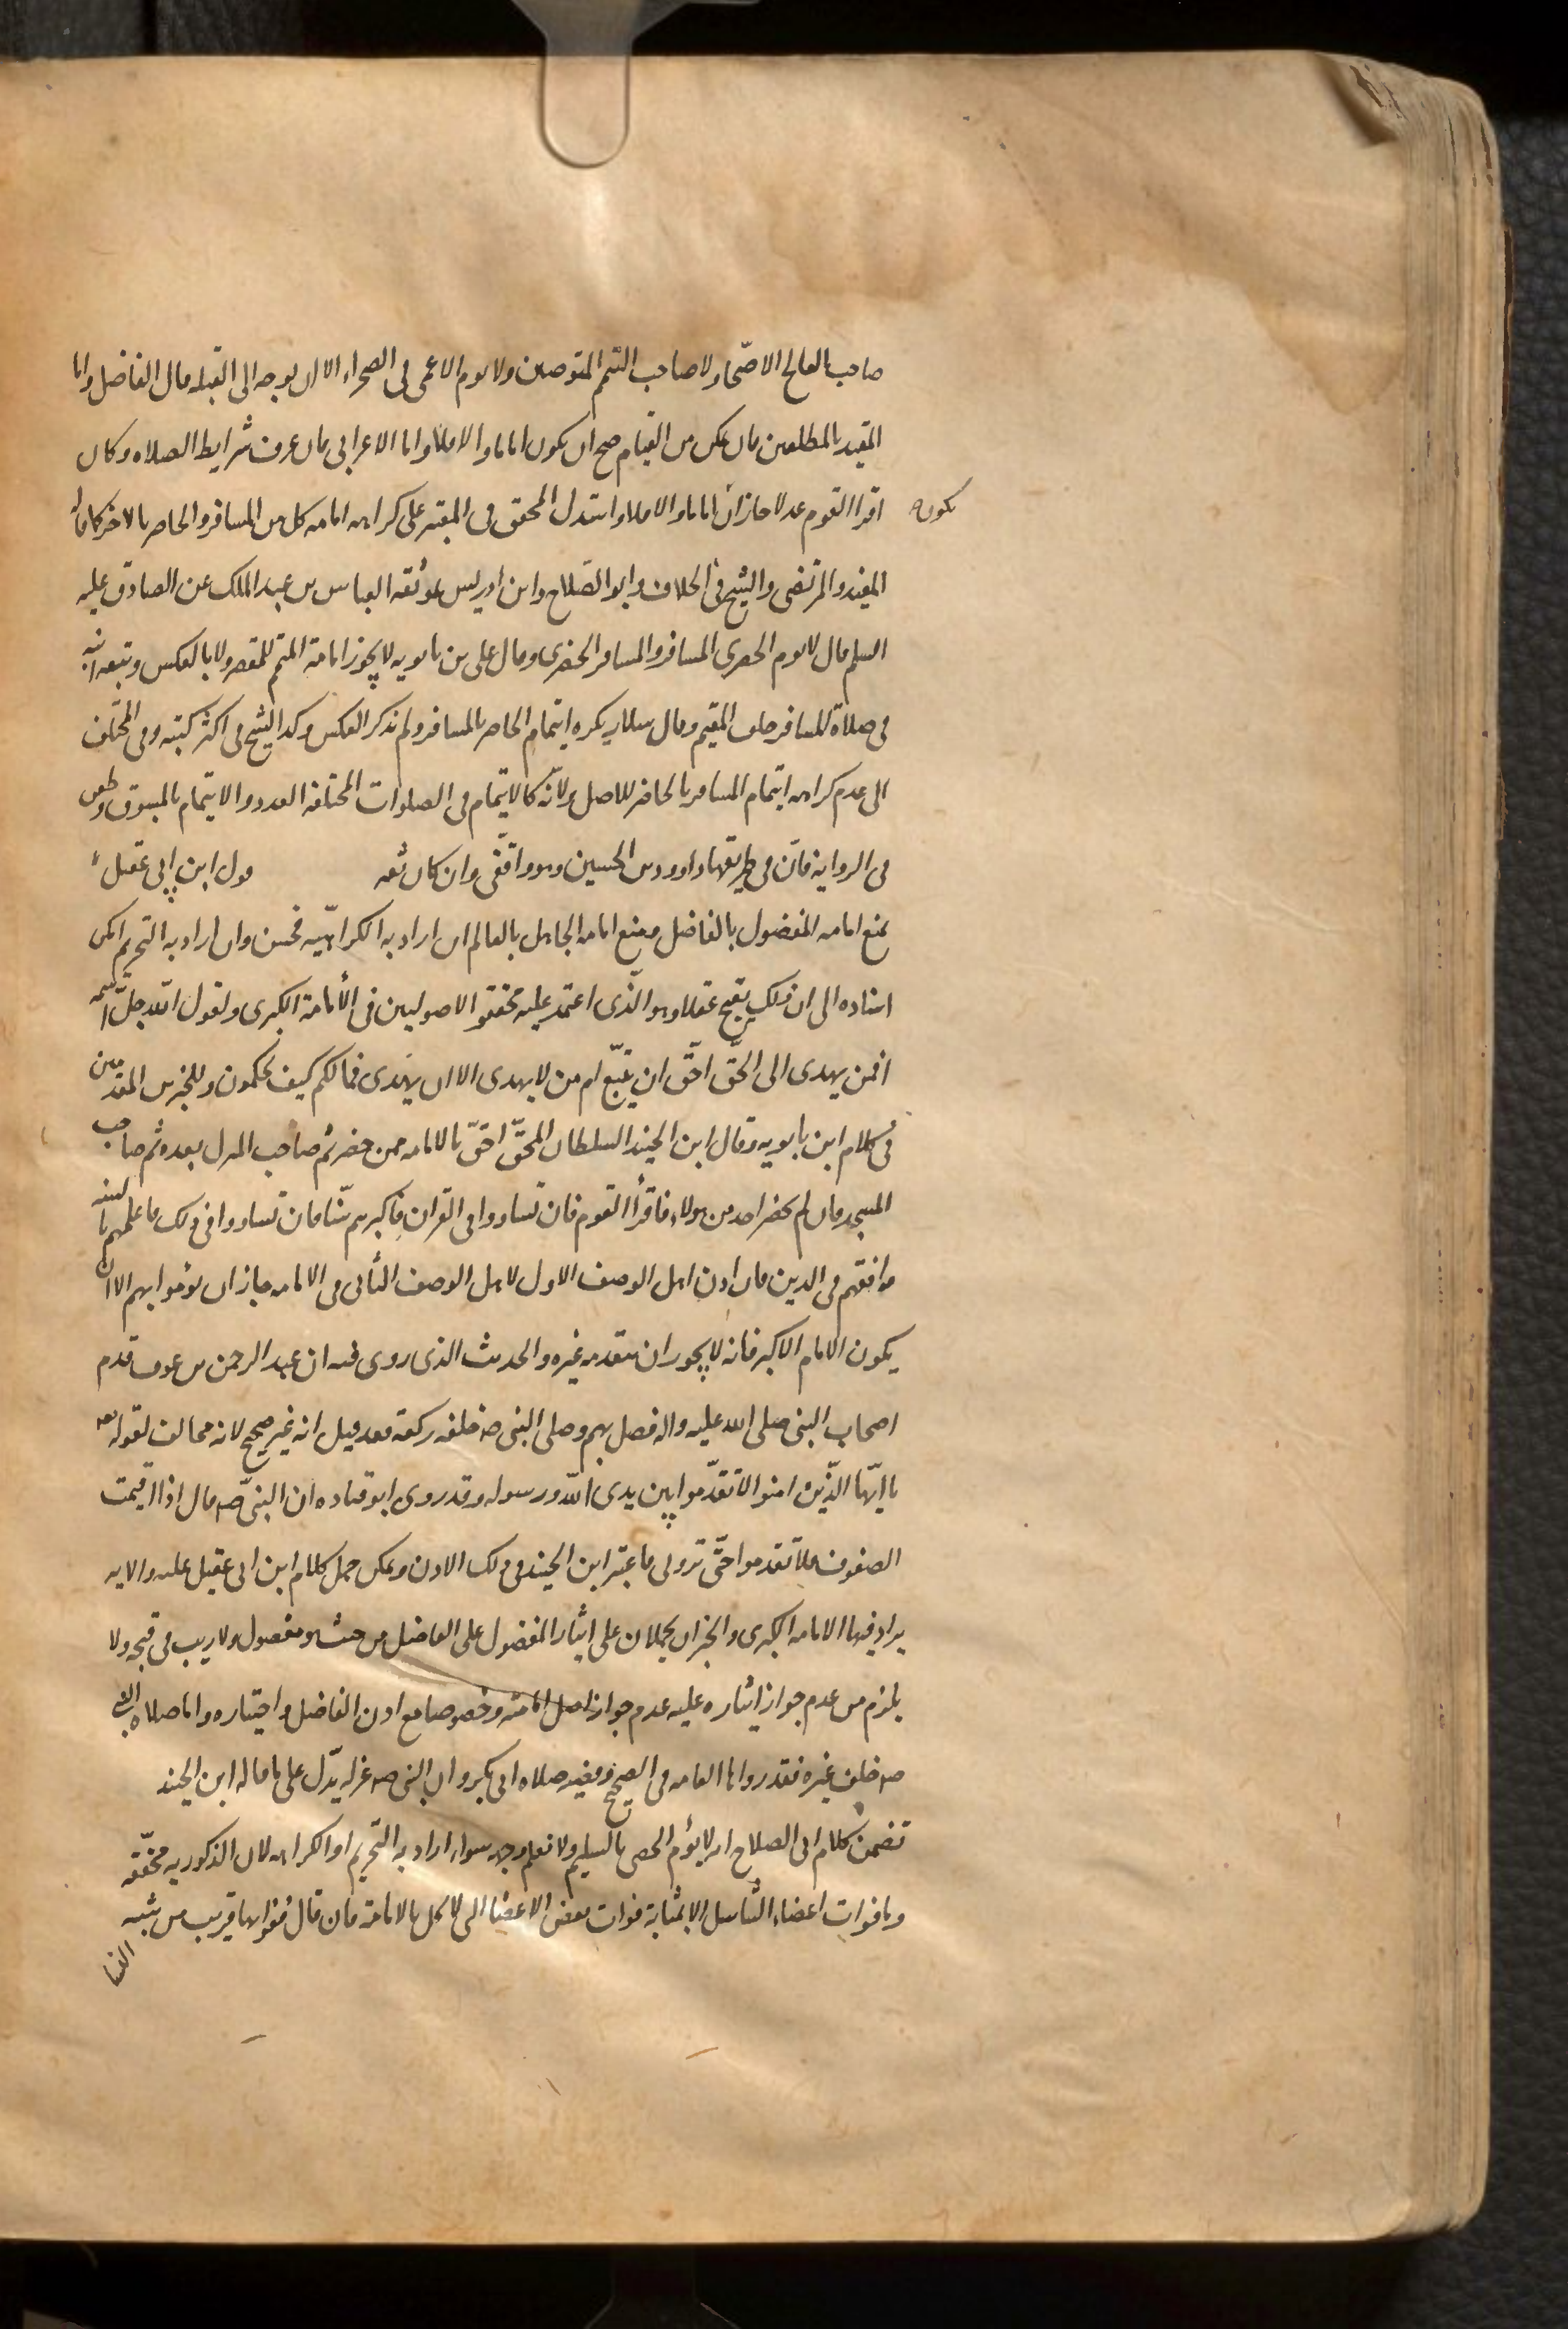 صاحب الفالج الاصحاء ولا صاحب التيمم المتوضين ولا يوم الاعمى فى الصحراء الا ان يوجه الى القبلة قال الفاضل واما
المقيد بالمطلقين فان تمكن من القيام صح ان يكون اماما والا فلا واما الاعرابى فان عرف شرايط الصلاه وكان
اقرا القوم عدلا جاز ان يكون اماما والا فلا واستدل المحقق فى المعتبر على كراهه امامه كل من المسافر والحاضر بالاخر كما قاله
المفيد والمرتضى والشيخ فى الخلاف وابو الصلاح وابن ادريس بموثقه العباس بن عبد الملك عن الصادق عليه
السلم قال لا يوم الحضرى المسافر والمسافر الحضرى وقال على بن بابويه لا يجوز امامة المتمم للمقصر ولا بالعكس وتبعه ابنه
فى صلاة المسافر خلف المقيم وقال سلار يكره ايتمام الحاضر بالمسافر ولم يذكر العكس وكذا الشيخ فى اكثر كتبه وفى المختلف
الى عدم كراهه ايتمام المسافر بالحاضر للاصل ولانّه كالايتمام فى الصلوات المختلفه العدد والايتمام بالمسبوق وطعن
فى الروايه فان فى طريقها داوود بن الحسين وهو واقفى وان كان ثقه قول ابن ابى عقيل
بمنع امامه المفضول بالفاضل ومنع امامه الجاهل بالعالم ان اراد به الكراهيّه فحسن وان اراد به التحريم امكن
استناده الى ان ذلك يقبح عقلا وهو الّذى اعتمد عليه محققو الاصوليين فى الأمامة الكبرى ولقول الله جلّ اسمه
افمن يهدى الى الحقّ احقّ ان يتبّع ام من لا يهدى الا ان يهدى فما لكم كيف تحكمون وللخبرين المتقدمين
فى كلام ابن بابويه وقال ابن الجنيد السلطان المحقّ احقّ بالامامه ممن حضر ثم صاحب المنزل بعده ثم صاحب
المسجد فان لم يحضر احد من هولاء فاقرأ القوم فان تساووا فى القران فاكبرهم سّنا فان تساووا فى ذلك فاعلمهم بالسنه
وافقههم فى الدين فان اذن اهل الوصف الاول لاهل الوصف الثانى فى الامامه جاز ان يؤموا بهم الا ان
يكون الامام الاكبر فانه لا يجوز ان يتقدمه غيره والحديث الذى روى فيه ان عبد الرحمن بن عوف قدم
اصحاب النبى صلى الله عليه واله فصلى بهم وصلى النبى صه خلفه ركعة فقد قيل انه غير صحيح لانه مخالف لقوله تعه
يا ايّها الّذين امنوا لا تقدّموا بين يدى الله ورسوله وقد روى ابو قتاده ان النبىّ صه قال اذا اقيمت
الصفوف فلا تقدموا حتّى ترونى فاعتبر ابن الجنيد فى ذلك الاذن ويمكن حمل كلام ابن ابى عقيل عليه والايه
يراد فيها الامامه الكبرى والخبران يحملان على ايثار المفضول على الفاضل من حيث هو مفضول ولا ريب فى قبحه ولا
يلزم من عدم جواز ايثاره عليه عدم جواز اصل امامته وخصوصا مع اذن الفاضل واختياره واما صلاه النبى
صه خلف غيره فقد رواها العامه فى الصحيح وفيه صلاه ابى بكر وان النبى صه عزله يدّل على ما قاله ابن الجنيد
تضمن كلام ابى الصلاح انه لا يؤم الخصى بالسليم ولا نعلم وجهه سواء اراد به التحريم او الكراهه لان الذكوريه محقّقه
وما فوات اعضاء التناسل الا بمثابة فوات بعض الاعضا التى لا تخل بالامامة فان قال فواتها قريب من شبه
النسا